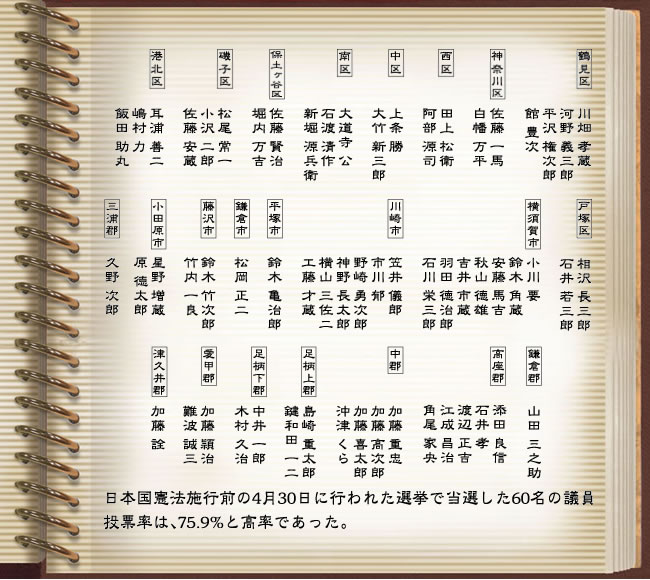 鶴見区
川畑 孝蔵
河野 義三郎
平沢 権次郎
館 豊次
神奈川区
佐藤 一馬
白幡 万平
西区
田上 松衛
阿部 源司
中区
上条 勝
大竹 新三郎
南区
大道寺 公
石渡 清作
新堀 源兵衛
保土ヶ谷区
佐藤 賢治
堀内 万吉
磯子区
松尾 常一
小沢 二郎
佐藤 安蔵
港北区
耳浦 善二
嶋村 力
飯田 助丸
戸塚区
相沢 長三郎
石井 若三郎
横須賀市
小川 要
鈴木 角蔵
安藤 馬吉
秋山 徳雄
吉井 市蔵
羽田 徳治郎
石川 栄三郎
川崎市
笠井 儀郎
市川 郁
野崎 勇次郎
神野 長太郎
横山 三佐二
工藤 才蔵
平塚市
鈴木 亀治郎
鎌倉市
松岡 正二
藤沢市
鈴木 竹次郎
竹内 一良
小田原市
星野 増蔵
原 徳太郎
三浦郡
久野 次郎
鎌倉郡
山田 三之助
高座郡
添田 良信
石井 孝
渡辺 正吉
江成 昌治
角尾 家央
中郡
加藤 重忠
加藤 高次郎
加藤 喜太郎
沖津 くら
足柄上郡
島崎 重太郎
鍵和田 一二
足柄下郡
中井 一郎
木村 久治
愛甲郡
加藤 頴治
難波 誠三
津久井郡
加藤 詮
日本国憲法施行前の4月30日に行われた選挙で当選した60名の議員
投票率は、75.9%と高率であった。